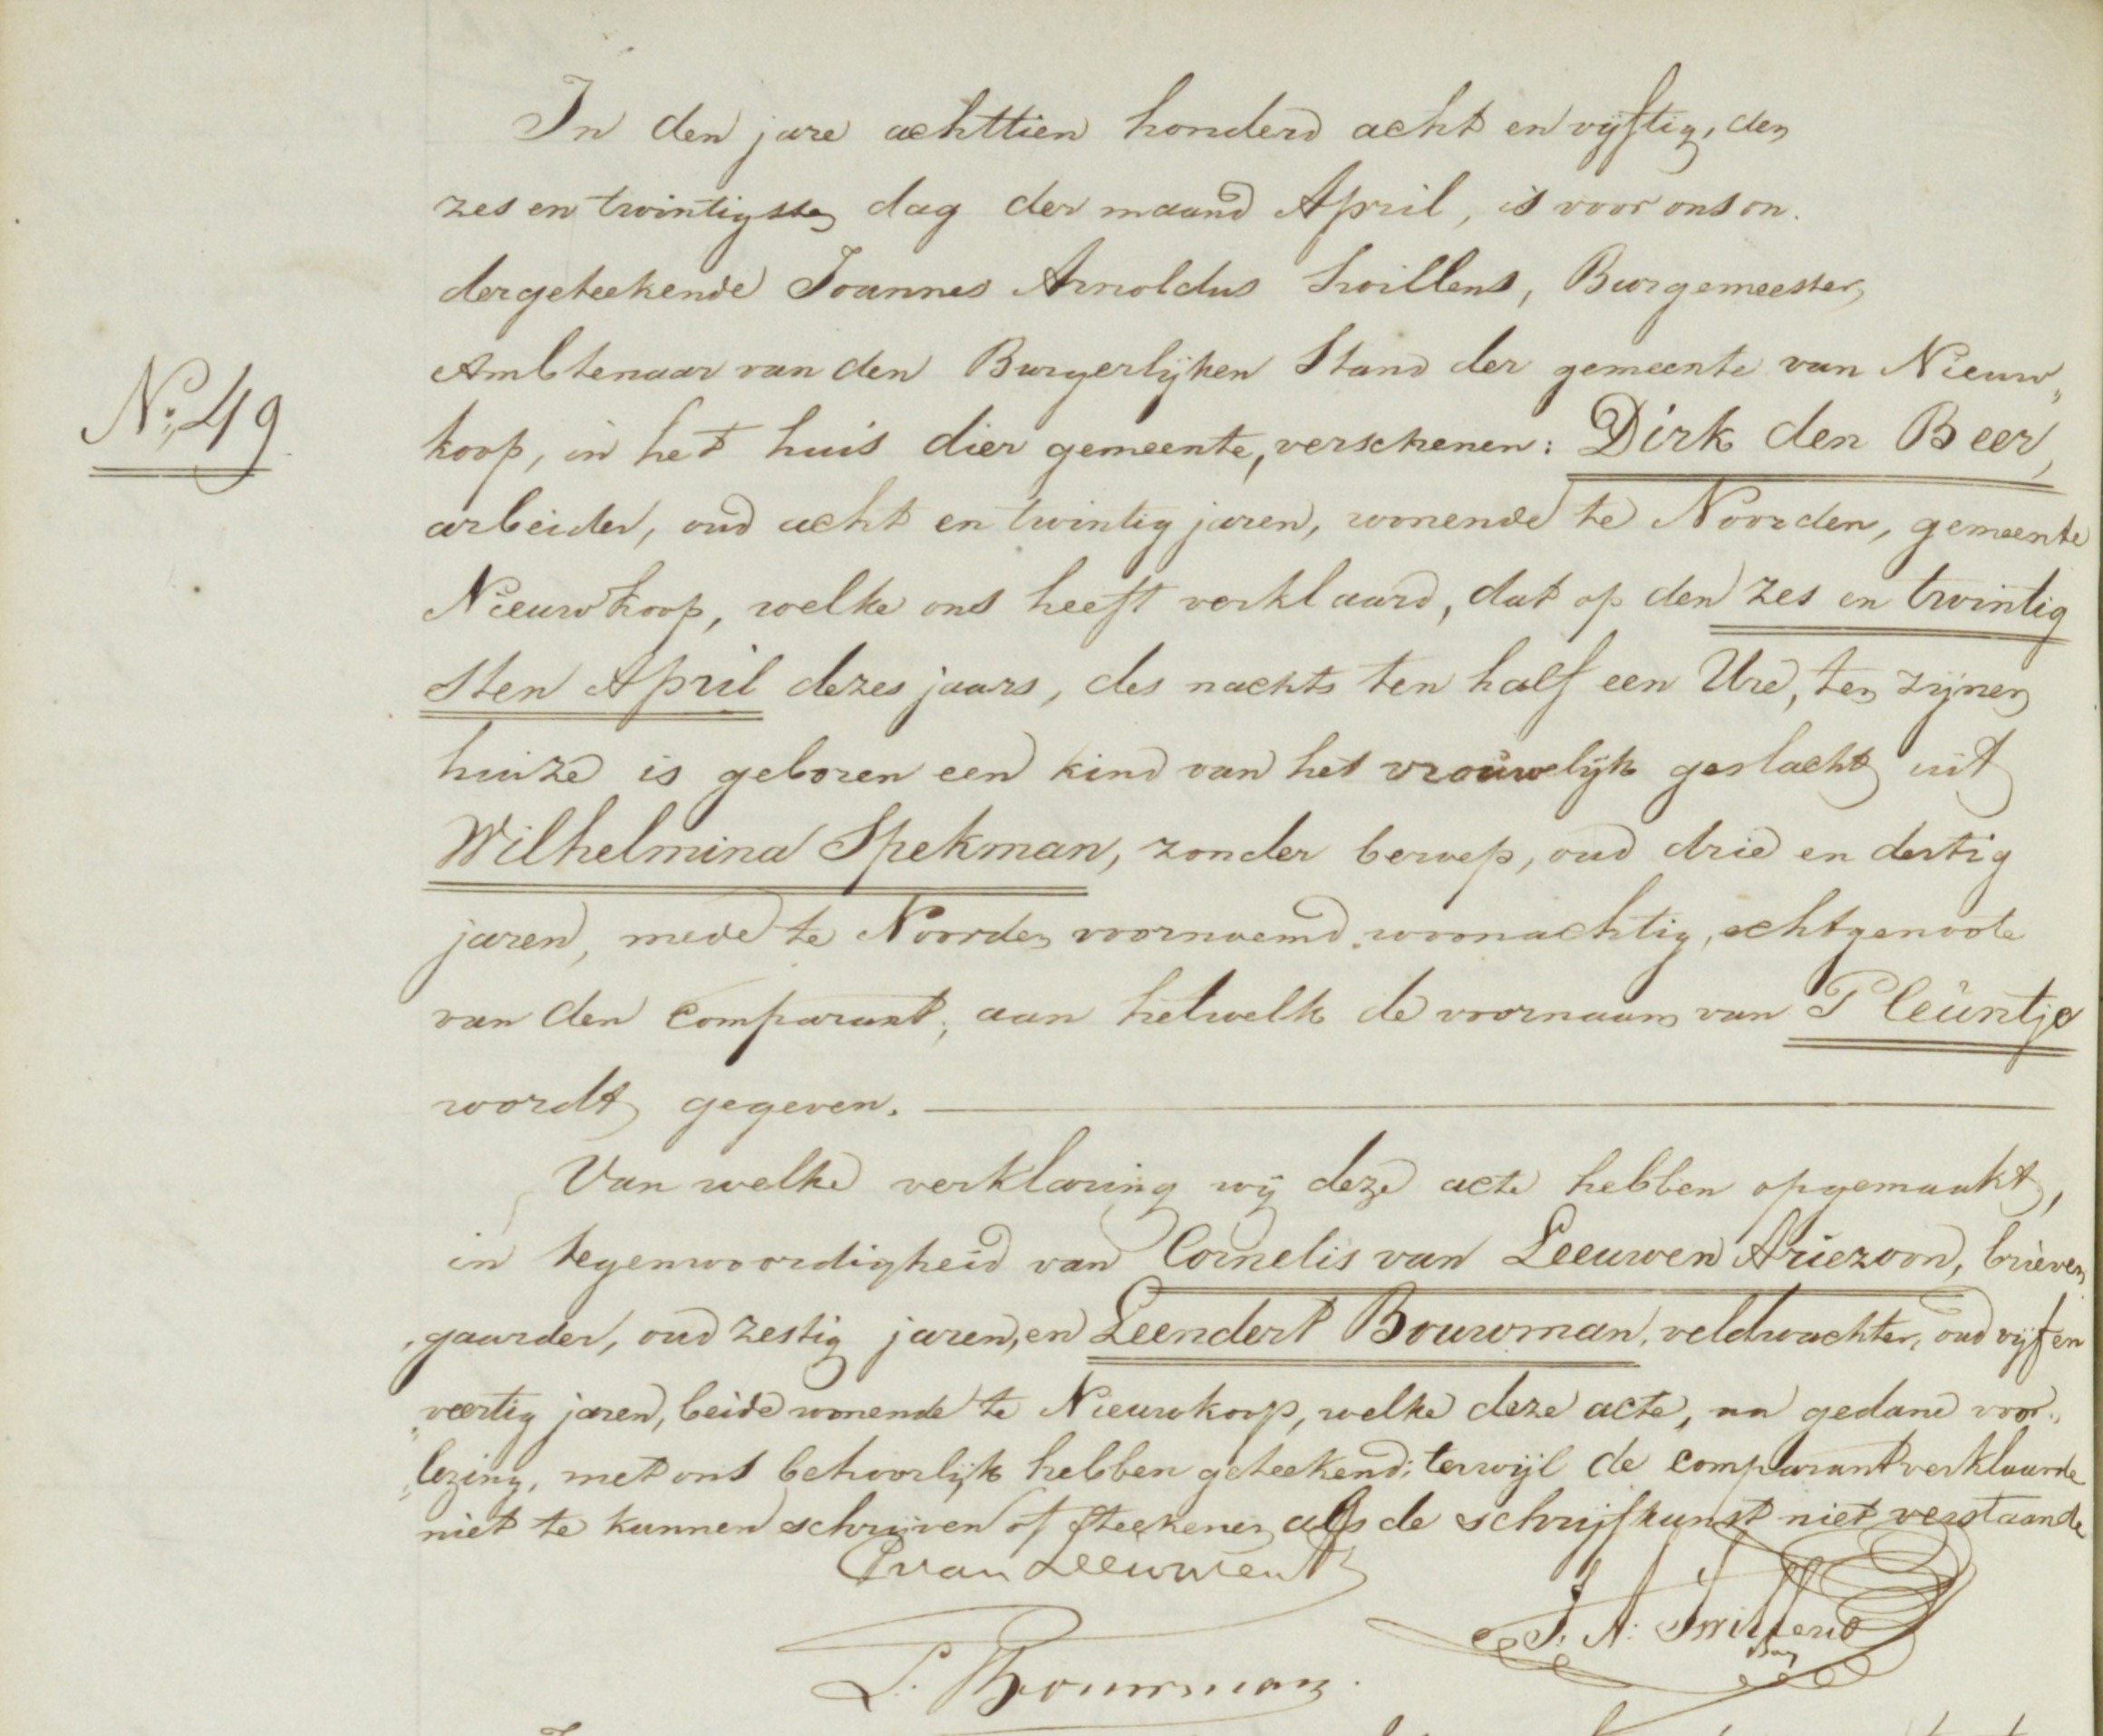 In den jare achttien honderd acht en vijftig, den
zes en twintigsten dag der maand April, is voor ons on.
dergeteekende Joannes Arnoldus Swillens, Burgemeester,
Ambtenaar van den Burgerlijken Stand der gemeente van Nieuw„
No. 49
koop, in het huis dier gemeente, verschenen: Dirk den Beer,
arbeider, oud acht en twintig jaren, wonende te Noorden, gemeente
Nieuwkoop, welke ons heeft verklaard, dat op den zes en twintig
sten April dezes jaars, des nachts ten half een Ure, ten zijnen
huize is geboren een kind van het vrouwelijk geslacht uit
Wilhelmina Spekman, zonder beroep, oud drie en dertig
jaren, mede te Noorden voornoemd woonachtig, echtgenoote
van den Comparant, aan hetwelk de voornaam van Pleuntje
wordt gegeven.
Van welke verklaring wij deze acte hebben opgemaakt,
in tegenwoordigheid van Cornelis van Leeuwen Ariezoon, brieven
gaarder, oud zestig jaren, en Leendert Bouwman, veldwachter, oud vijf en
veertig jaren, beide wonende te Nieuwkoop, welke deze acte, na gedane voor„
„lezing, met ons behoorlijk hebben geteekend; terwijl de comparant verklaarde
niet te kunnen schrijven of teekenen als de schrijfkunst niet verstaande
C van Leeuwen Az
J. A. Swillens
Bm
L. Bouwman.